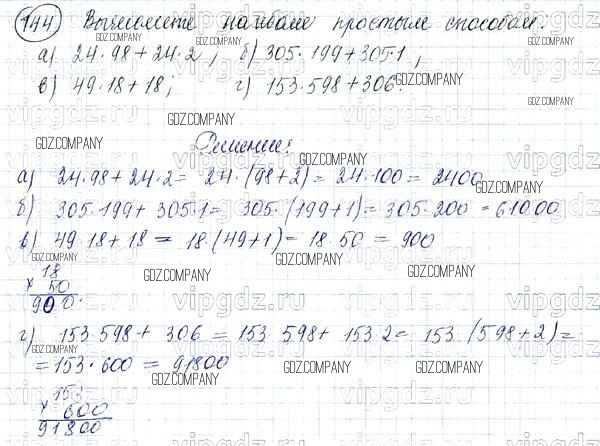 144 Вычислите наиболее простым способом:
а) 24·98+24·2; б) 305·199+305·1;
в) 49·18+18; г) 153·598+306.
Решение:
а) 24·98+24·2= 24·(98+2)= 24·100= 2400
б) 305·199+305·1= 305·(199+1)= 305·200 = 61000
в) 49·18+18 = 18·(49+1)= 18·50 = 900
18
× 50
900.
г) 153·598+ 306 = 153·598+ 153·2= 153·(598+2)=
=153·600 = 91800
153
× 600
91800
GDZ.COMPANY
vipgdz.ru